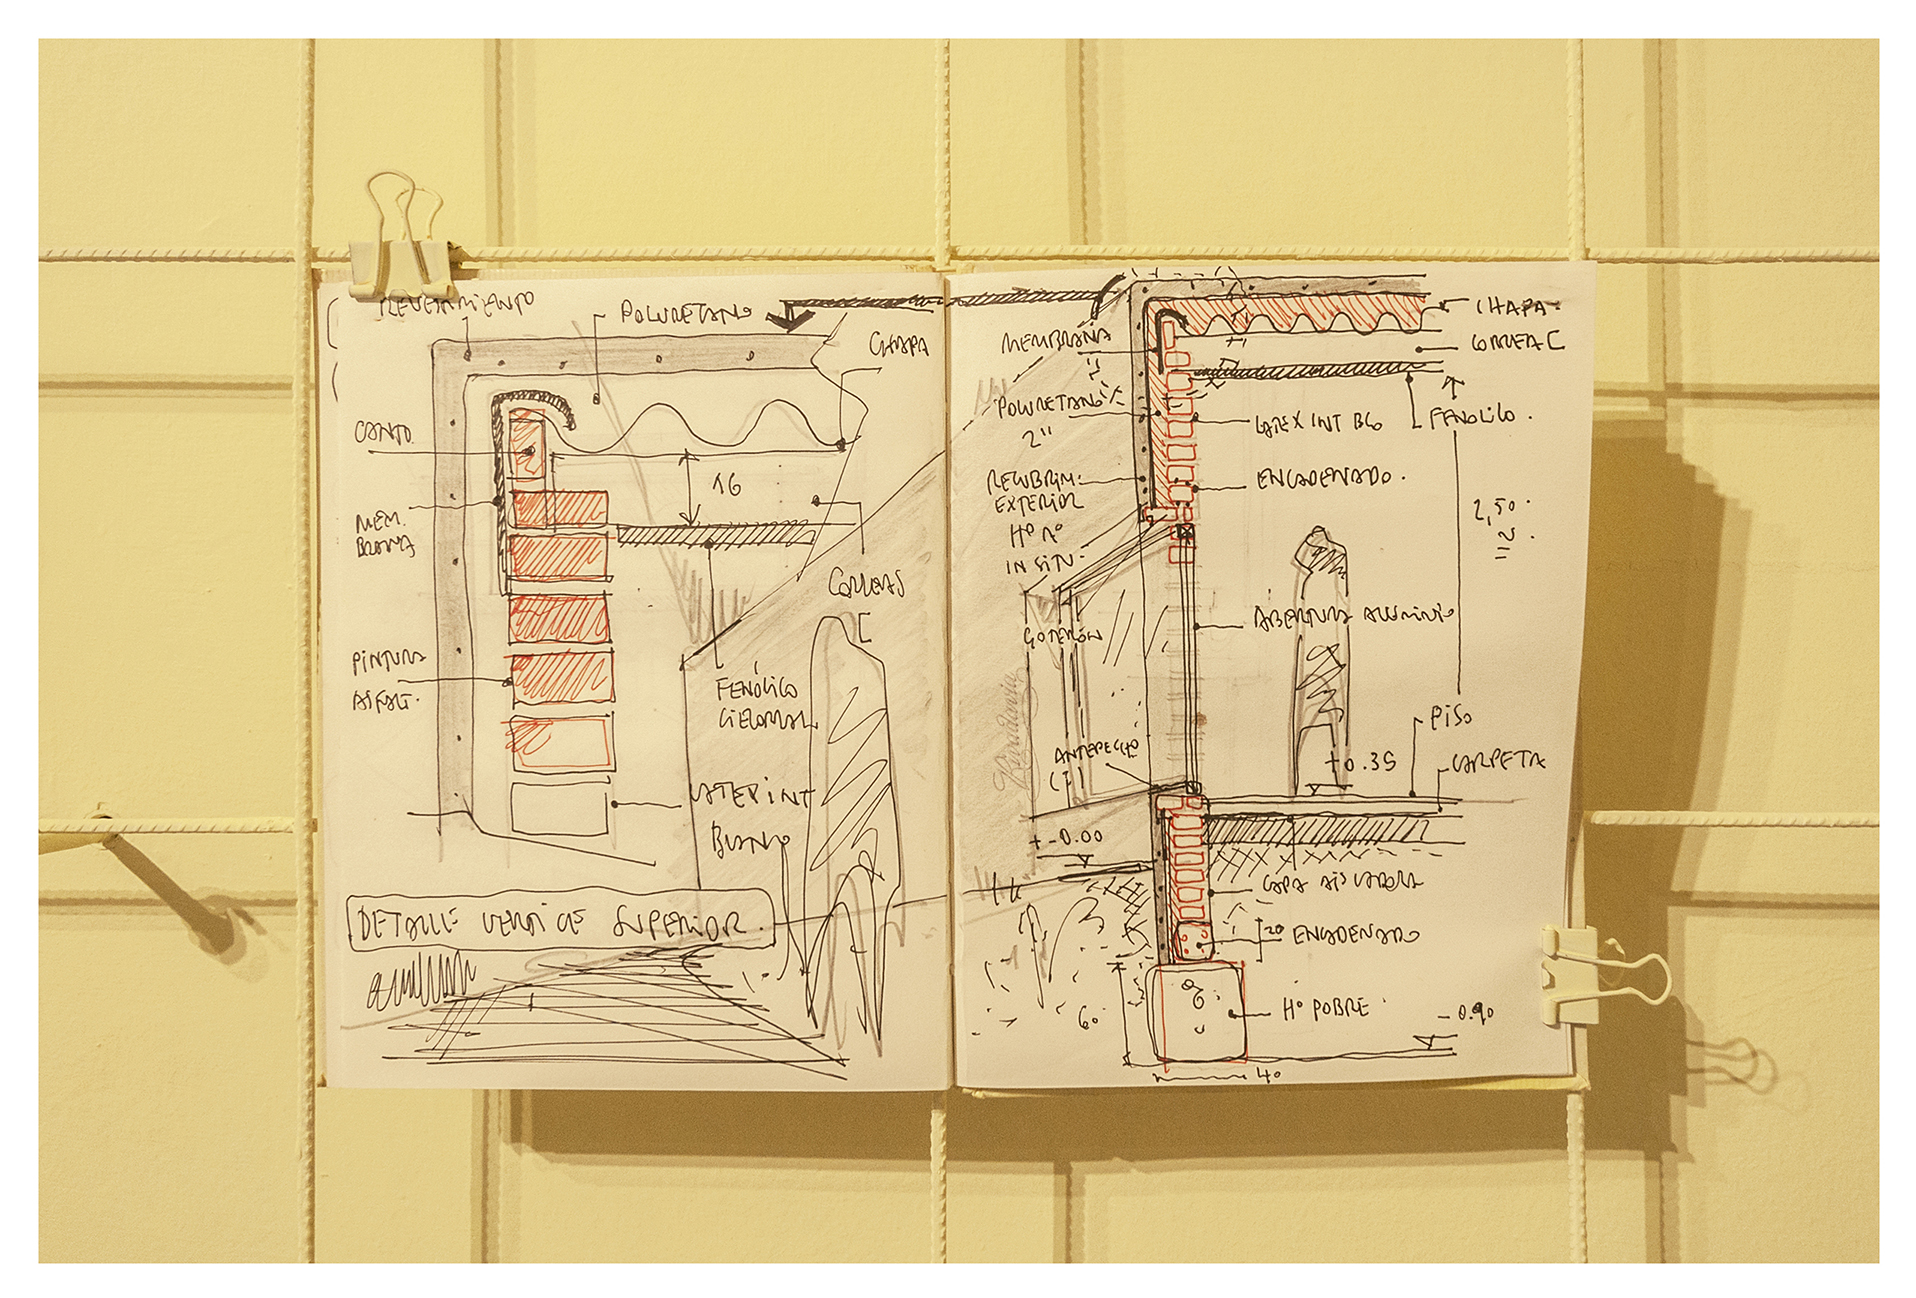 REVESTIMIENTO
POLIURETANO
CHAPA
CANTO
16
MEM.
BRANA
CORREAS
PINTURA
ASFALT.
FENÓLICO
CIELORRAS.
LATEX INT
BLANCO
DETALLE VERTICE SUPERIOR.
CHAPA
MEMBRANA
CORREA C
POLIURETANO
2"
LATEX INT BCO
FENOLICO.
RECUBRIM.
EXTERIOR
Hº Aº
IN SITU
ENCADENADO.
2,50.
GOTERÓN
ABERTURA ALUMINIO
PISO
ANTEPECHO
+0.35
CARPETA
+-0.00
CAPA AISLADORA
20
ENCADENADO
60
Hº POBRE
-0.90
40